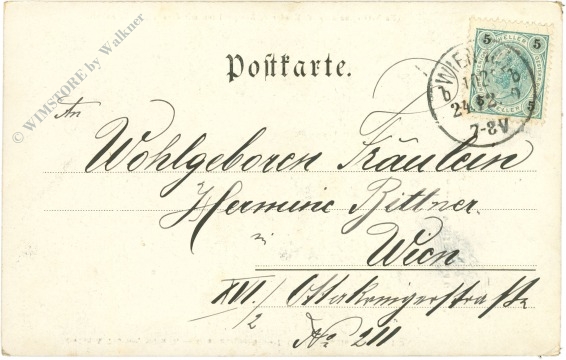 © WIMSTORE by Walkner
Postkarte.
5 HELLER 5
WIEN
24 12
7-8V
An
Wohlgeboren Fräulein
Hermine Bittner.
in
Wien
XVI./2 Ottakringerstraße
No 211